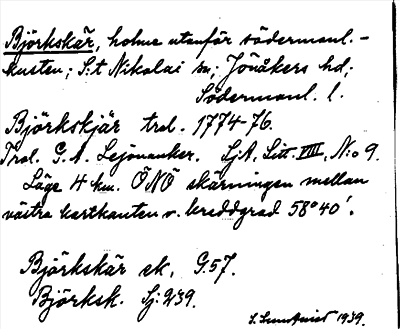 Björkskär, holme utanför södermanl.-
kusten; S:t Nikolai sn; Jönåkers hd;
Södermanl. l.
Björkskjär trol. 1774-76.
Trol. G. A. Lejonanker. LjA, Litt. VIII, N:o 9.
Läge 4 km. ÖNÖ skärningen mellan
västra kartkanten o. breddgrad 58°40'.
Björkskär ek. G.57.
Björksk. Sj: 939.
1939.